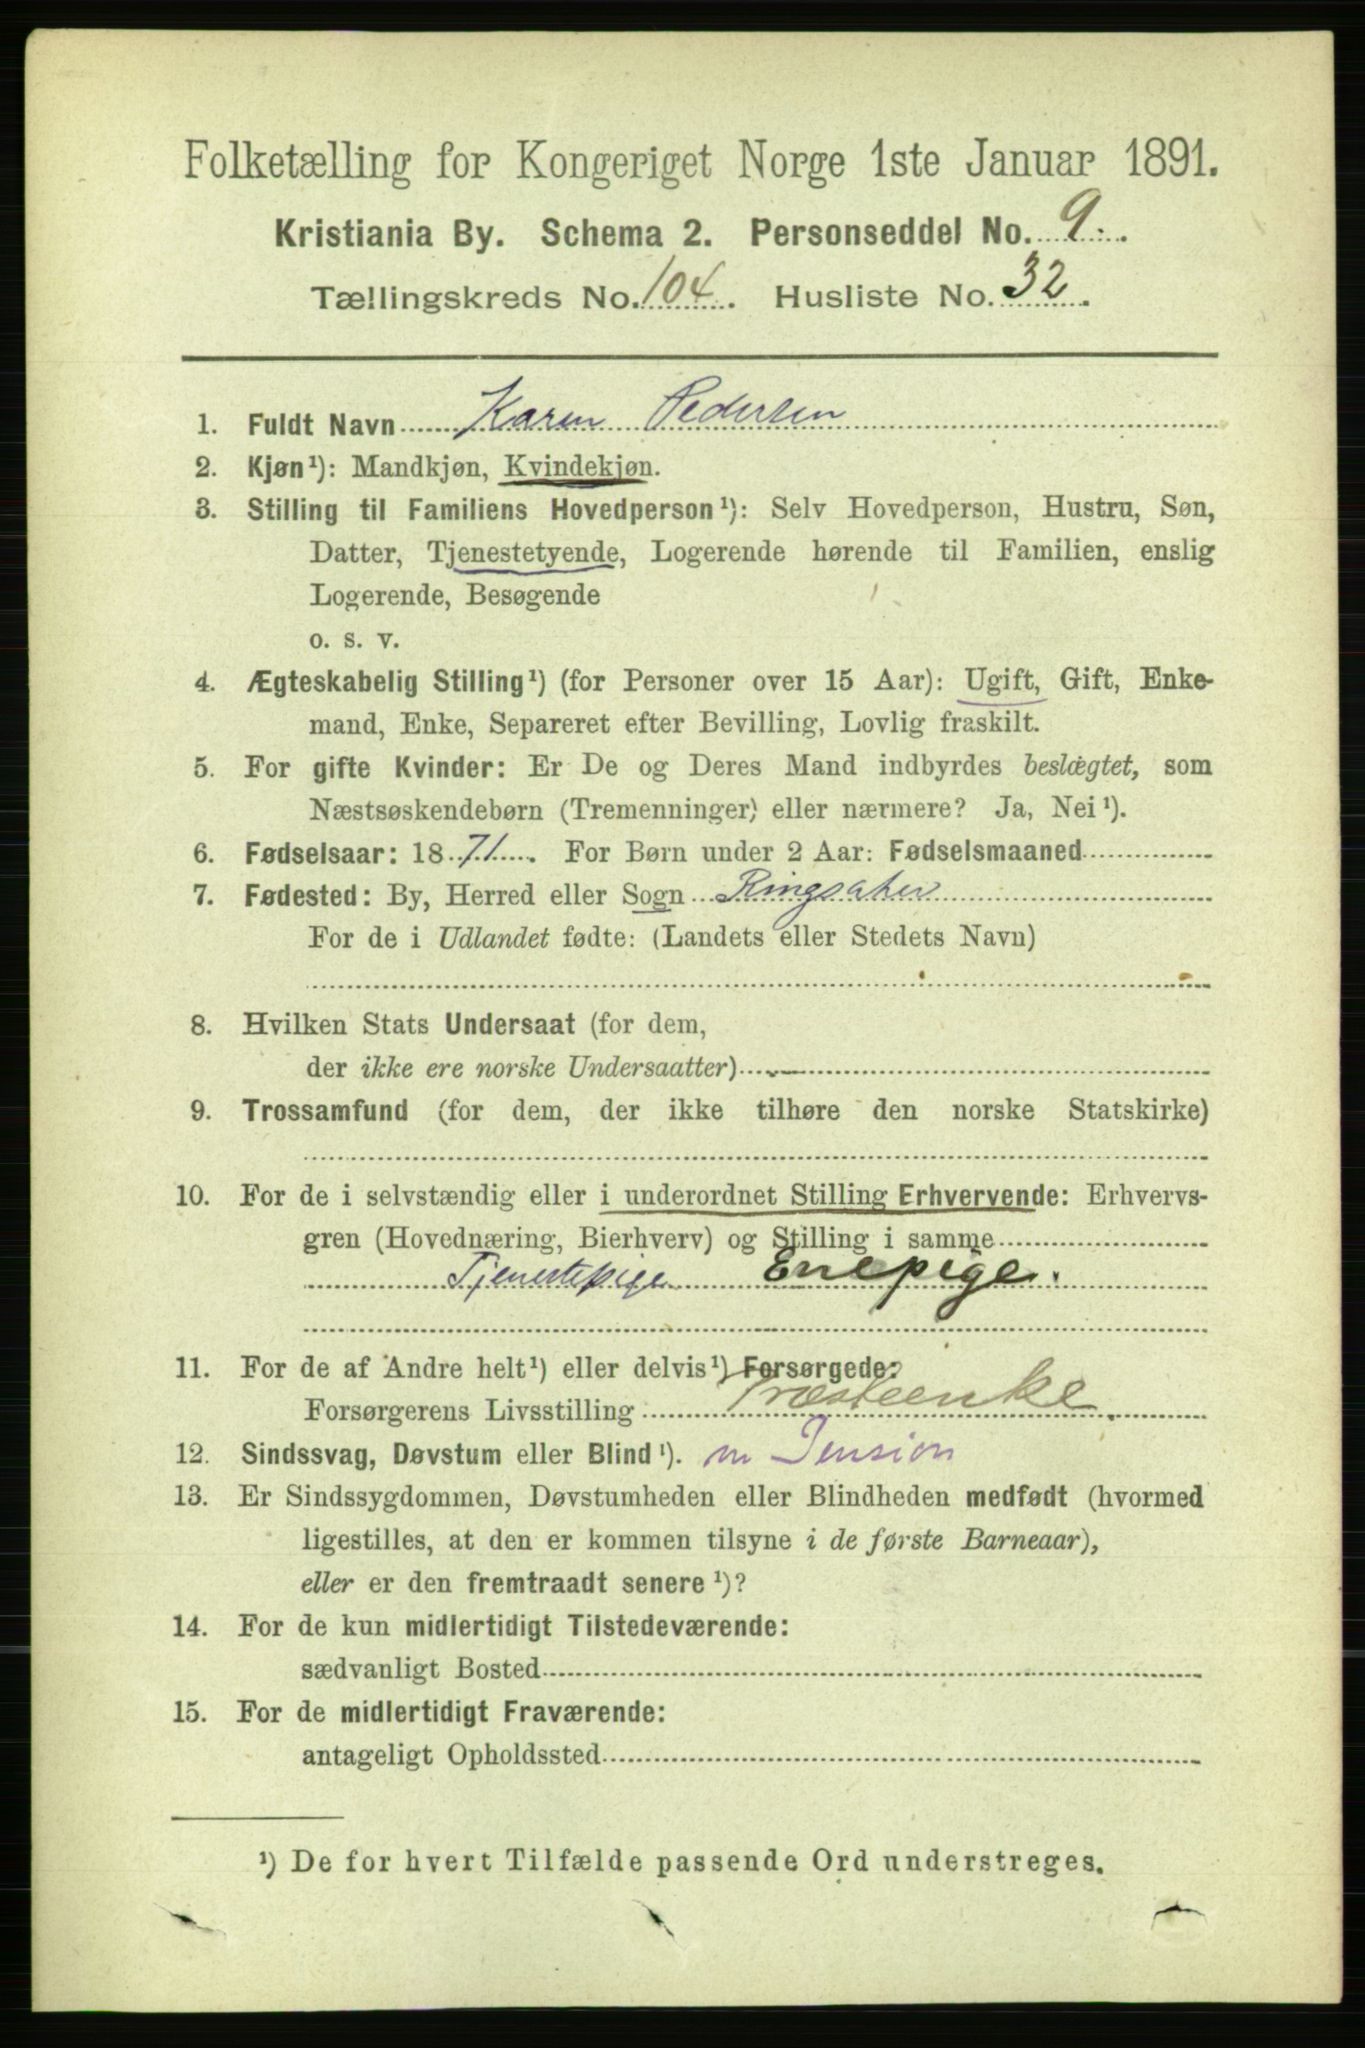 Folketælling for Kongeriget Norge 1ste Januar 1891.
Kristiania By. Schema 2. Personseddel No. 9.
Tællingskreds No. 104. Husliste No. 32.
1. Fuldt Navn Karen Pedersen
2. Kjøn¹): Mandkjøn, Kvindekjøn.
3. Stilling til Familiens Hovedperson¹): Selv Hovedperson, Hustru, Søn,
Datter, Tjenestetyende, Logerende hørende til Familien, enslig
Logerende, Besøgende
o. s. v.
4. Ægteskabelig Stilling¹) (for Personer over 15 Aar): Ugift, Gift, Enke-
mand, Enke, Separeret efter Bevilling, Lovlig fraskilt.
5. For gifte Kvinder: Er De og Deres Mand indbyrdes beslægtet, som
Næstsøskendebørn (Tremenninger) eller nærmere? Ja, Nei¹).
6. Fødselsaar: 1871. For Børn under 2 Aar: Fødselsmaaned
7. Fødested: By, Herred eller Sogn Ringsaker
For de i Udlandet fødte: (Landets eller Stedets Navn)
8. Hvilken Stats Undersaat (for dem,
der ikke ere norske Undersaatter)
9. Trossamfund (for dem, der ikke tilhøre den norske Statskirke)
10. For de i selvstændig eller i underordnet Stilling Erhvervende: Erhvervs-
gren (Hovednæring, Bierhverv) og Stilling i samme
Tjenestepige Enepige.
11. For de af Andre helt¹) eller delvis¹) Forsørgede:
Forsørgerens Livsstilling Præsteenke.
12. Sindssvag, Døvstum eller Blind¹). m Pension
13. Er Sindssygdommen, Døvstumheden eller Blindheden medfødt (hvormed
ligestilles, at den er kommen tilsyne i de første Barneaar),
eller er den fremtraadt senere¹)?
14. For de kun midlertidigt Tilstedeværende:
sædvanligt Bosted
15. For de midlertidigt Fraværende:
antageligt Opholdssted
¹) De for hvert Tilfælde passende Ord understreges.